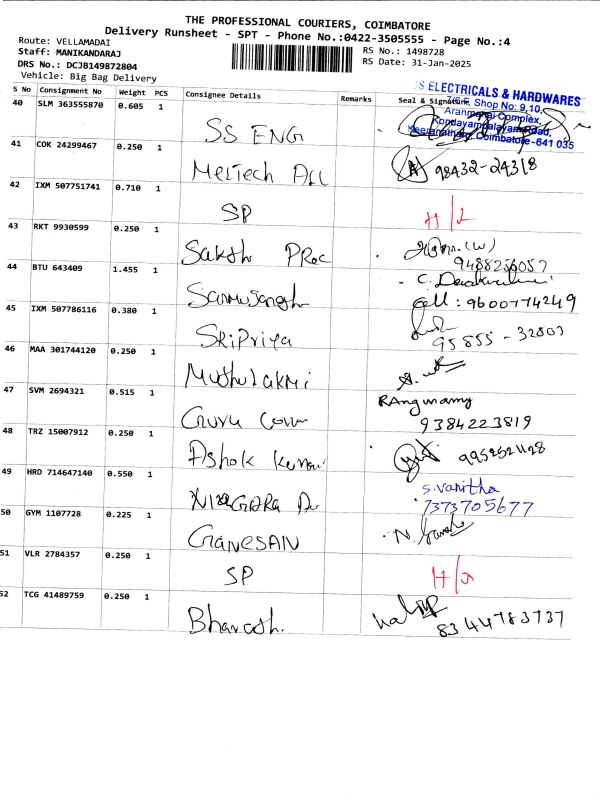 THE PROFESSIONAL COURIERS, COIMBATORE
Delivery Runsheet - SPT - Phone No.:0422-3505555 - Page No.:4
Route: VELLAMADAI
RS No.: 1498728
Staff: MANIKANDARAJ
RS Date: 31-Jan-2025
DRS No.: DCJB149872804
Vehicle: Big Bag Delivery
S No Consignment No Weight PCS Consignee Details Remarks Seal & Signature
S ELECTRICALS & HARDWARES
Shop No: 9,10,
Complex,
Coimbatore-641 035
40 SLM 363555870 0.605 1 SS ENG
41 COK 24299467 0.250 1 98432-24318
42 IXM 507751741 0.710 1 SP
43 RKT 9930599 0.250 1 Sakthi (W)
9488256057
44 BTU 643409 1.455 1 C.
Cell : 9600774249
45 IXM 507786116 0.380 1 SRiPriya
95855 - 32803
46 MAA 301744120 0.250 1 Muthulakmi
47 SVM 2694321 0.515 1 Guru
9384223819
48 TRZ 15007912 0.250 1 Ashok Kumar
49 HRD 714647140 0.550 1 S.Vanitha
7373705677
50 GYM 1107728 0.225 1 GANESAN N.
51 VLR 2784357 0.250 1 SP
52 TCG 41489759 0.250 1 Bharath.
8344783737